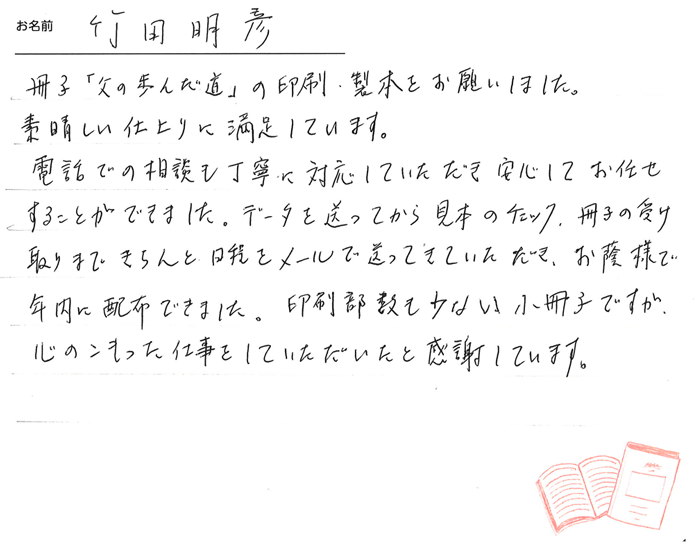 お名前 竹田明彦
冊子「父の歩んだ道」の印刷・製本をお願いしました。
素晴しい仕上りに満足しています。
電話での相談も丁寧に対応していただき安心してお任せ
することができました。データを送ってから見本のチェック、冊子の受け
取りまできちんと日程をメールで送ってきていただき、お蔭様で
年内に配布できました。印刷部数も少ない小冊子ですが、
心のこもった仕事をしていただいたと感謝しています。